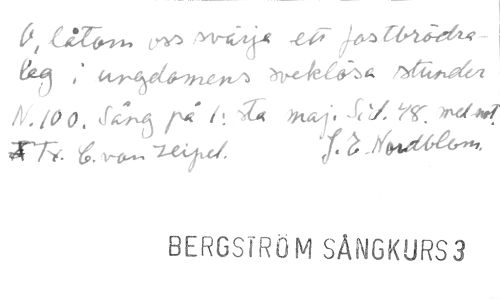 O, låtom oss svärja ett fostbrödra-
lag i ungdomens sveklösa stunder
N. 100. Sång på 1:sta maj. Sid. 48. med not.
Tx. C. von Zeipel. J. E. Nordblom.
BERGSTRÖM SÅNGKURS 3